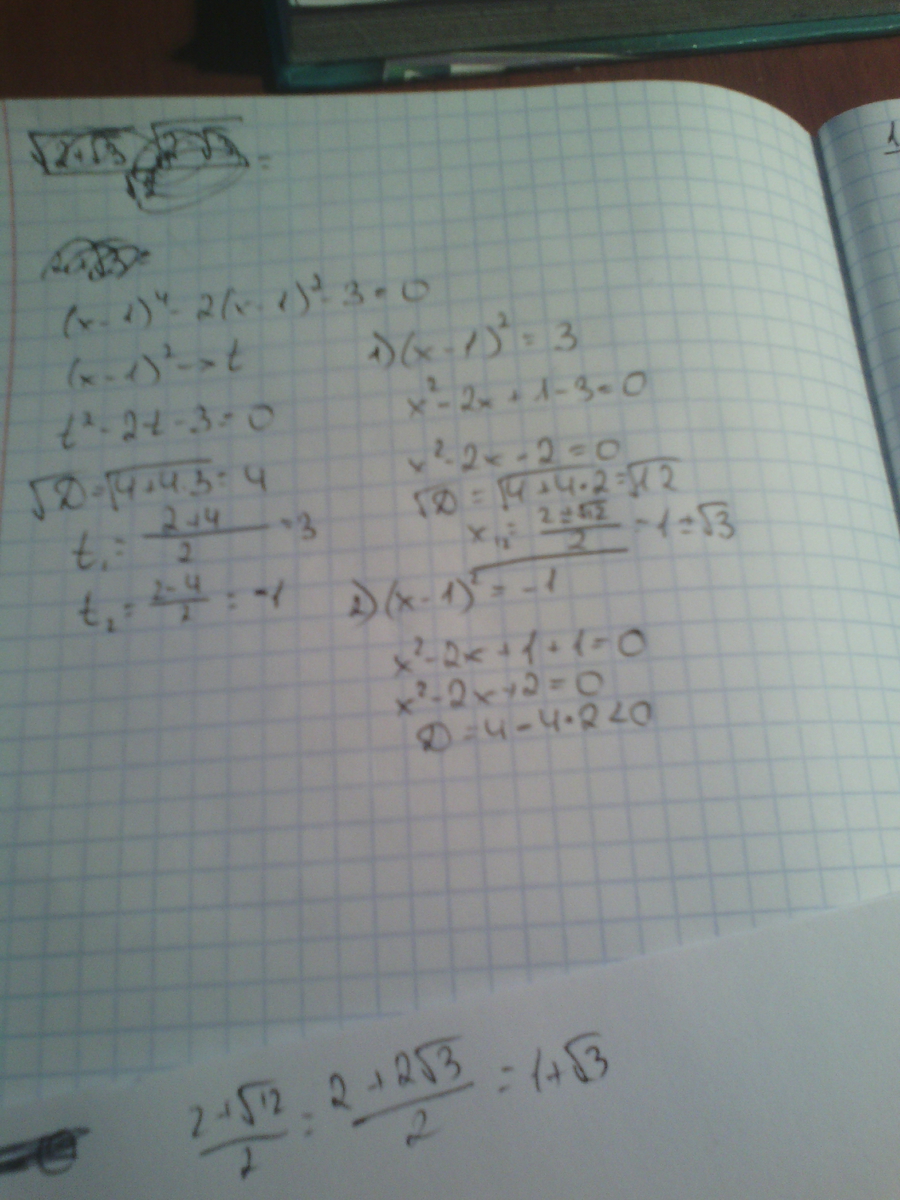 (x-1)⁴-2(x-1)²-3=0
(x-1)²->t
t²-2t-3=0
√D=√(4+4·3)=4
t₁=(2+4)/2=3
t₂=(2-4)/2=-1
1)(x-1)²=3
x²-2x+1-3=0
x²-2x-2=0
√D=√(4+4·2)=√12
x₁,₂=(2±√12)/2=1±√3
2)(x-1)²=-1
x²-2x+1+1=0
x²-2x+2=0
D=4-4·2<0
(2+√12)/2=(2+2√3)/2=1+√3
1